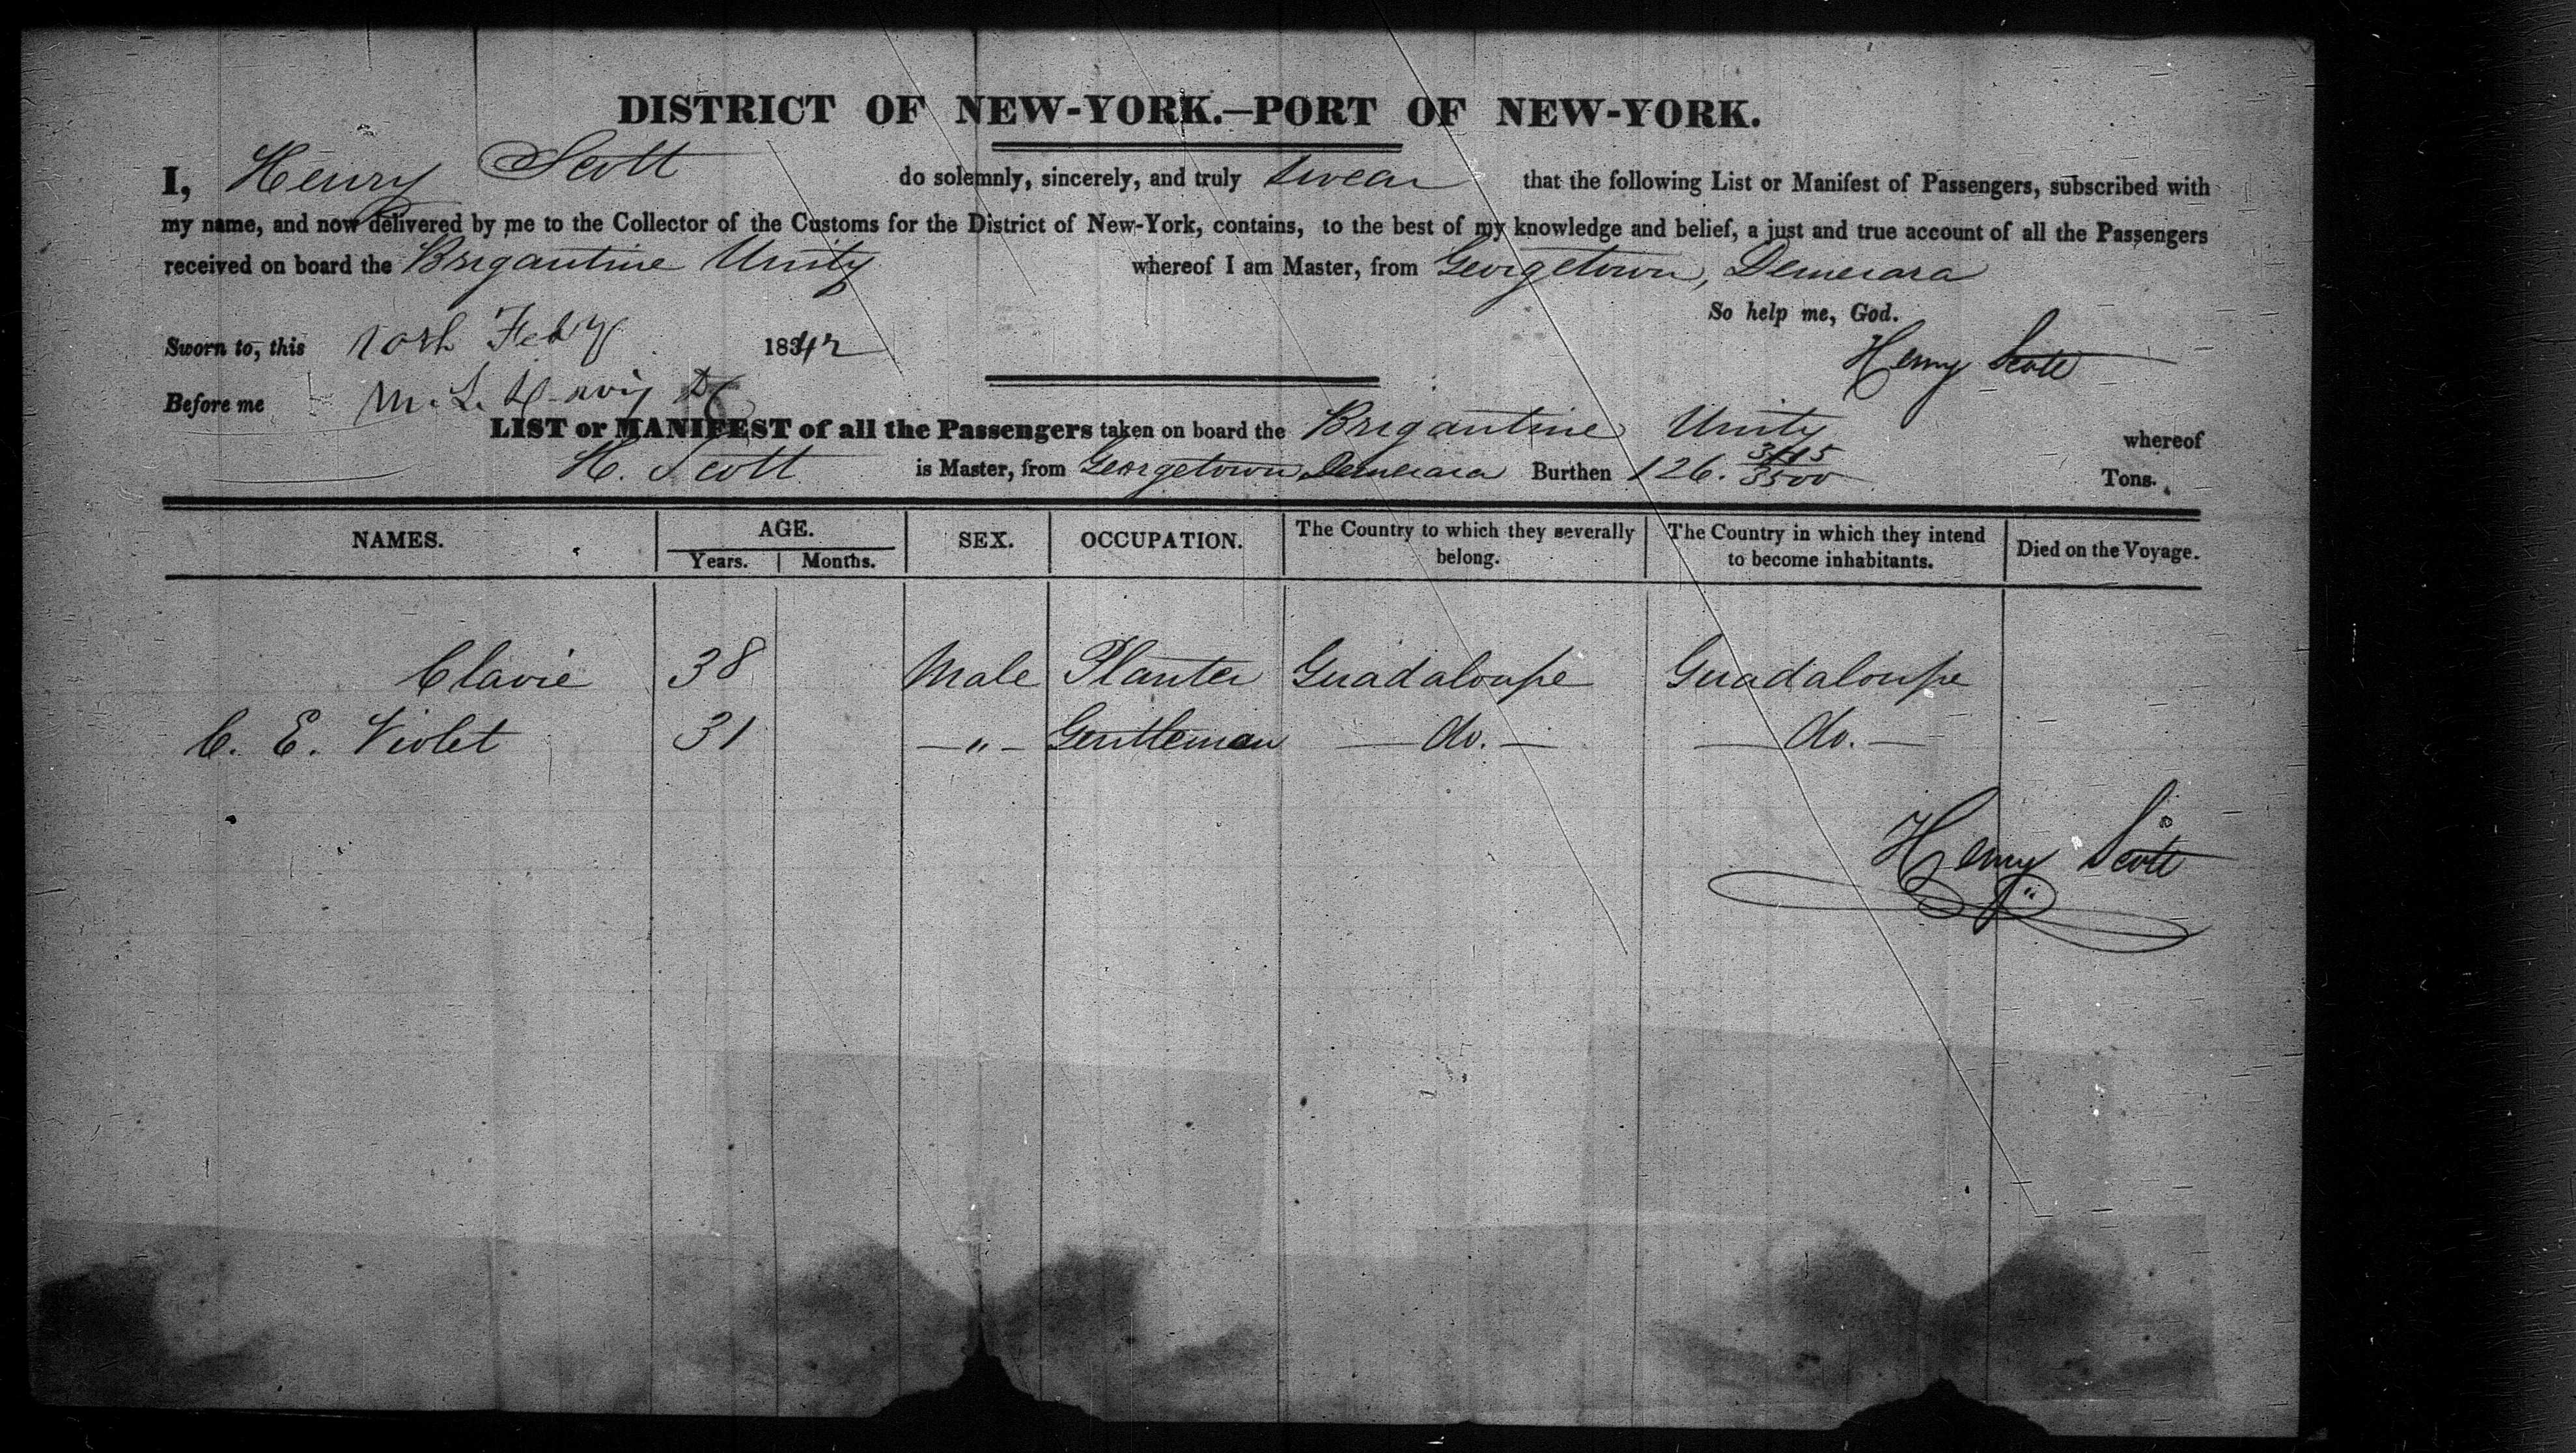 DISTRICT OF NEW-YORK.—PORT OF NEW-YORK.
I, Henry Scott do solemnly, sincerely, and truly swear that the following List or Manifest of Passengers, subscribed with
my name, and now delivered by me to the Collector of the Customs for the District of New-York, contains, to the best of my knowledge and belief, a just and true account of all the Passengers
received on board the Brigantine Unity whereof I am Master, from Georgetown, Demerara
So help me, God.
Sworn to, this Feby 1842
Henry Scott
Before me
LIST or MANIFEST of all the Passengers taken on board the Brigantine Unity whereof
H. Scott is Master, from Georgetown Demerara Burthen 126. Tons.
NAMES. AGE. Years. Months. SEX. OCCUPATION. The Country to which they severally belong. The Country in which they intend to become inhabitants. Died on the Voyage.
Clavie 38 Male Planter Guadaloupe Guadaloupe
C. E. Violet 31 —"— Gentleman — do. — — do. —
Henry Scott